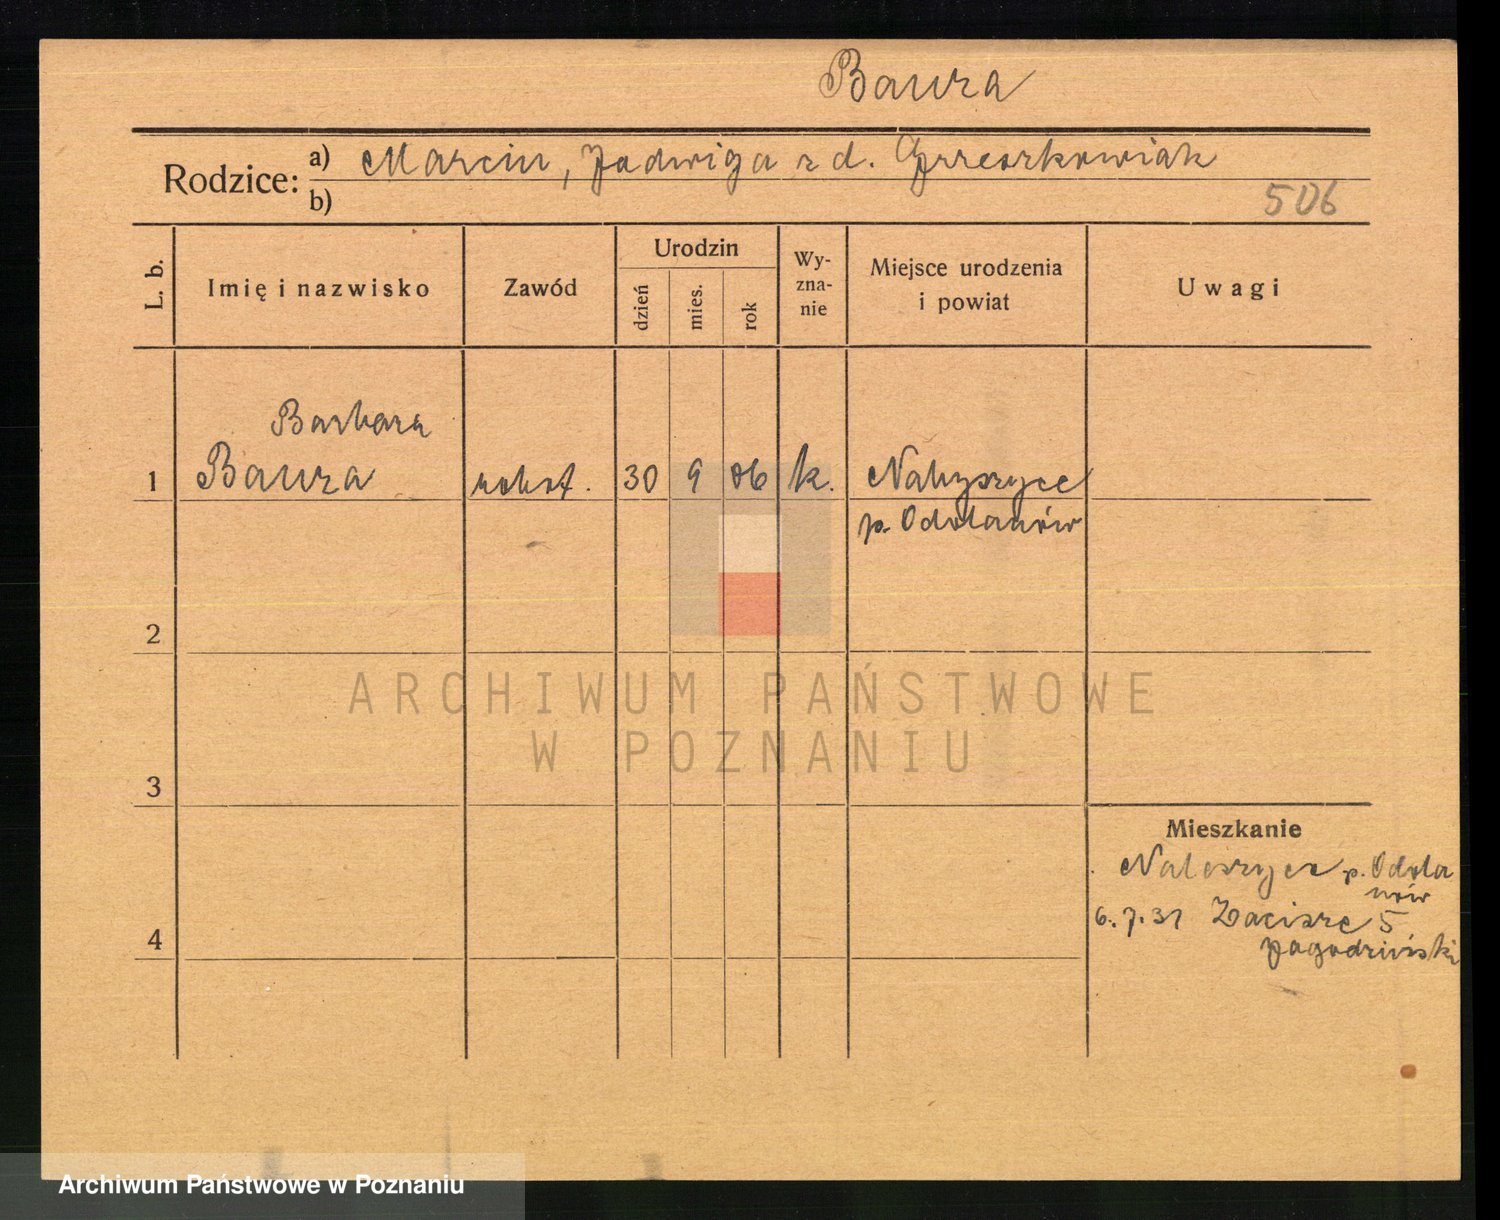 Baura
Rodzice: a) Marcin, Jadwiga z d. Grzeszkowiak
b)
506
L. b. Imię i nazwisko Zawód Urodzin dzień mies. rok Wy-zna-nie Miejsce urodzenia i powiat Uwagi
Barbara
1 Baura robot. 30 9 06 k.
p. Odolanów
2
ARCHIWUM PAŃSTWOWE
W POZNANIU
3
Mieszkanie
p. Odola
nów
6.7.31 Zacisze 5
4 Jagodziński
Archiwum Państwowe w Poznaniu